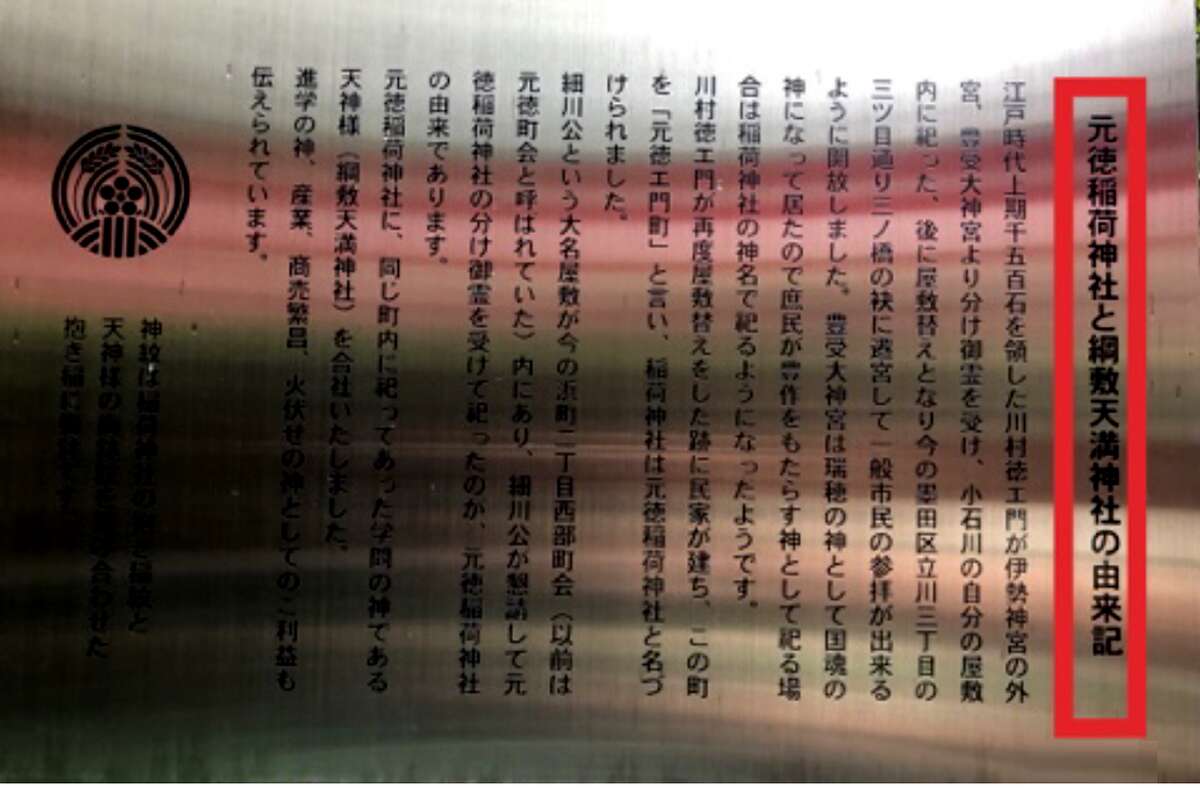 元徳稲荷神社と綱敷天満神社の由来記
江戸時代上期千五百石を領した川村徳エ門が伊勢神宮の外
宮、豊受大神宮より分け御霊を受け、小石川の自分の屋敷
内に祀った、後に屋敷替えとなり今の墨田区立川三丁目の
三ツ目通り三ノ橋の袂に遷宮して一般市民の参拝が出来る
ように開放しました。豊受大神宮は瑞穂の神として国魂の
神になって居たので庶民が豊作をもたらす神として祀る場
合は稲荷神社の神名で祀るようになったようです。
川村徳エ門が再度屋敷替えをした跡に民家が建ち、この町
を「元徳エ門町」と言い、稲荷神社は元徳稲荷神社と名づ
けられました。
細川公という大名屋敷が今の浜町二丁目西部町会（以前は
元徳町会と呼ばれていた）内にあり、細川公が懇請して元
徳稲荷神社の分け御霊を受けて祀ったのが、元徳稲荷神社
の由来であります。
元徳稲荷神社に、同じ町内に祀ってあった学問の神である
天神様（綱敷天満神社）を合社いたしました。
進学の神、産業、商売繁昌、火伏せの神としてのご利益も
伝えられています。
神紋は稲荷神社の
天神様の
抱き稲に